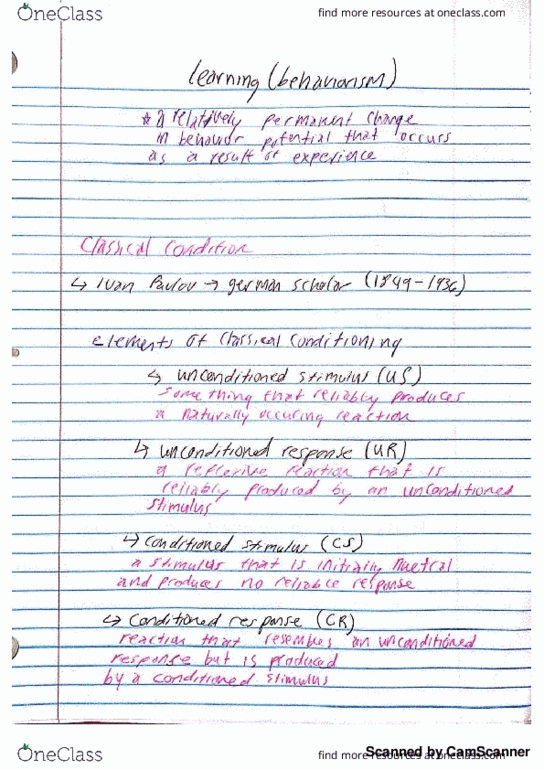 OneClass
find more resources at oneclass.com
learning (behaviorism)
* A relatively permanent change
in behavior potential that occurs
as a result of experience
Classical Condition
↳ Ivan Pavlov → german scholar (1849-1936)
elements of Classical Conditioning
↳ unconditioned stimulus (US)
something that reliably produces
a naturally occuring reaction
↳ unconditioned response (UR)
a reflexive reaction that is
reliably produced by an unconditioned
stimulus
↳ Conditioned stimulus (CS)
a stimulus that is initially nuetral
and produces no reliable response
↳ Conditioned response (CR)
reaction that resembles an unconditioned
response but is produced
by a conditioned stimulus
OneClass
find more resources at oneclass.com
Scanned by CamScanner